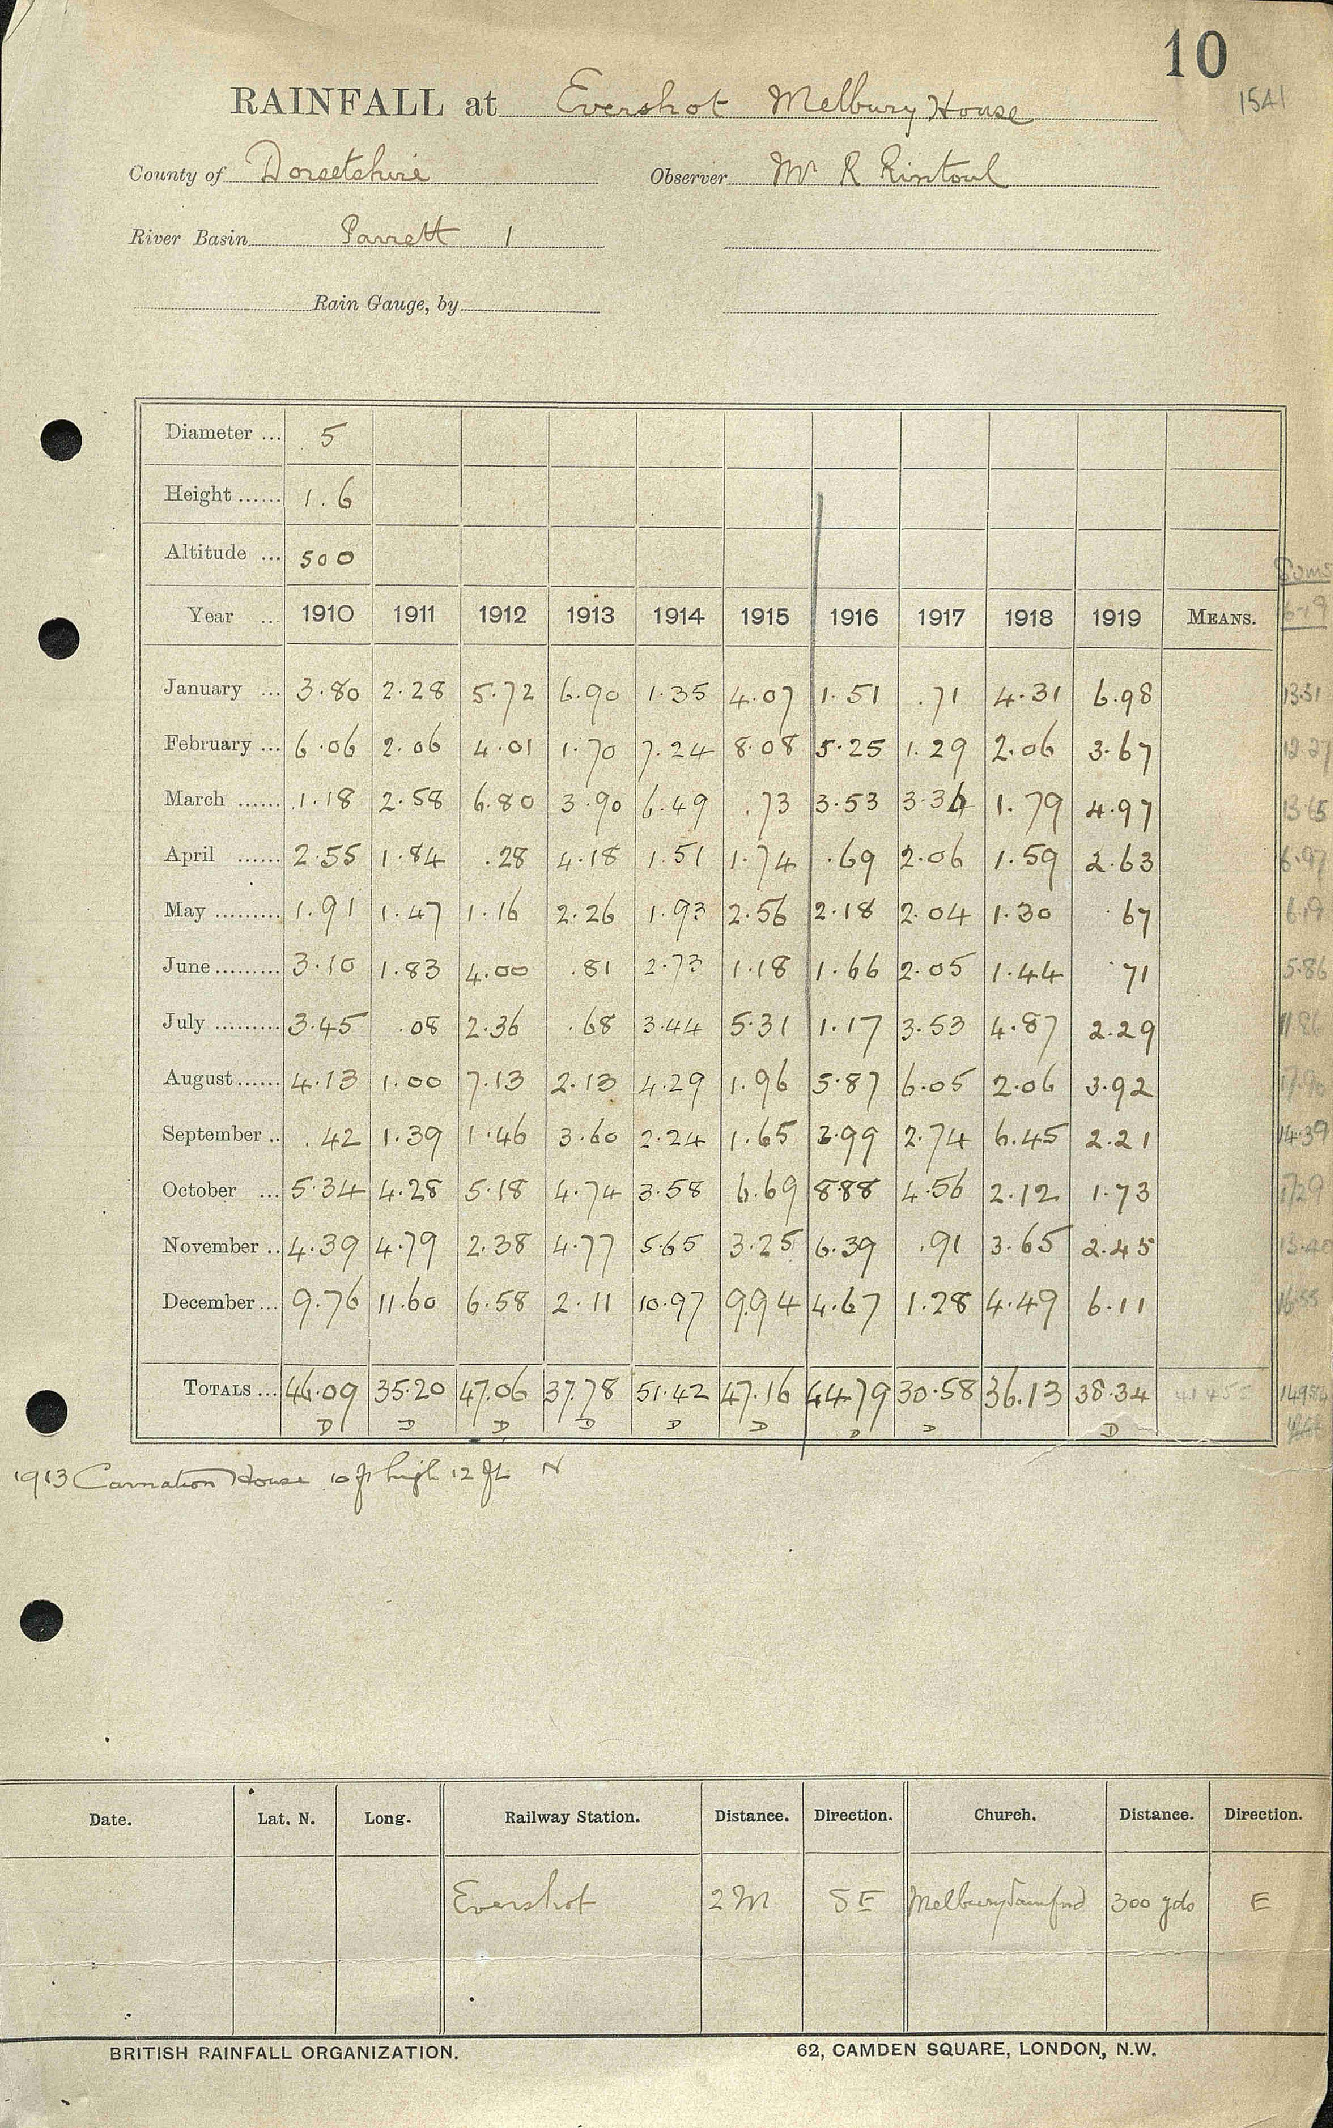 10
1541
RAINFALL at Evershot Melbury House
County of Dorsetshire Observer Mr R Rintoul
River Basin Parrett 1
Rain Gauge, by
Diameter ... 5
Height ...... 1.6
Altitude ... 500
Year ... 1910 1911 1912 1913 1914 1915 1916 1917 1918 1919 MEANS.
January ... 3.80 2.28 5.72 6.90 1.35 4.07 1.51 .71 4.31 6.98 13.51
February ... 6.06 2.06 4.01 1.70 7.24 8.08 5.25 1.29 2.06 3.67 12.27
March ...... 1.18 2.58 6.80 3.90 6.49 .73 3.53 3.36 1.79 4.97 13.65
April ...... 2.55 1.84 .28 4.18 1.51 1.74 .69 2.06 1.59 2.63 6.97
May ......... 1.91 1.47 1.16 2.26 1.93 2.56 2.18 2.04 1.30 .67 6.19
June ......... 3.10 1.83 4.00 .81 2.73 1.18 1.66 2.05 1.44 .71 5.86
July ......... 3.45 .08 2.36 .68 3.44 5.31 1.17 3.53 4.87 2.29 11.86
August ...... 4.13 1.00 7.13 2.13 4.29 1.96 5.87 6.05 2.06 3.92 17.90
September .. .42 1.39 1.46 3.60 2.24 1.65 2.99 2.74 6.45 2.21 14.39
October ... 5.34 4.28 5.18 4.74 3.58 6.69 8.88 4.56 2.12 1.73 17.29
November .. 4.39 4.79 2.38 4.77 5.65 3.25 6.39 .91 3.65 2.45 13.40
December ... 9.76 11.60 6.58 2.11 10.97 9.94 4.67 1.28 4.49 6.11 16.55
TOTALS ... 46.09 35.20 47.06 37.78 51.42 47.16 44.79 30.58 36.13 38.34 41.455
D D D D D D D D D
1913 Carnation House 10 ft high 12 ft N
Date. Lat. N. Long. Railway Station. Distance. Direction. Church. Distance. Direction.
Evershot 2 M SE Melbury Samford 300 yds E
BRITISH RAINFALL ORGANIZATION. 62, CAMDEN SQUARE, LONDON, N.W.